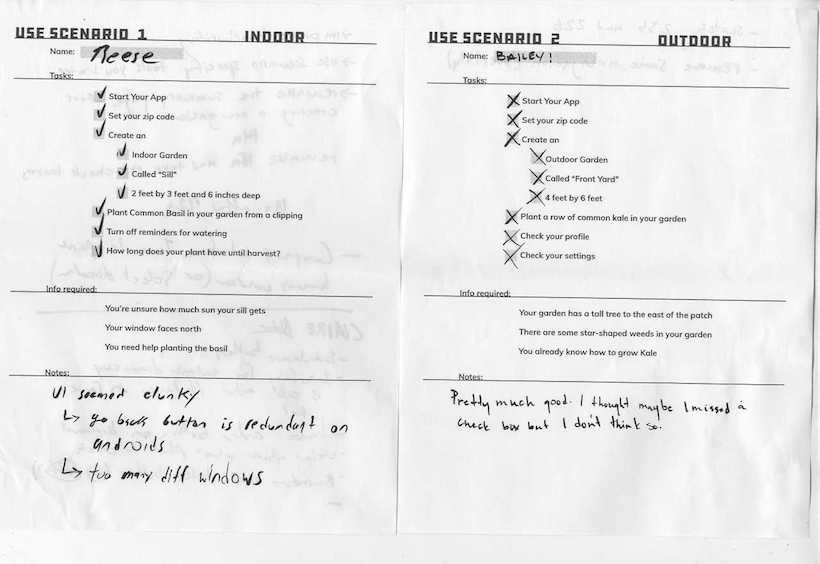 USE SCENARIO 1 INDOOR
Name: Reese
Tasks:
Start Your App
Set your zip code
Create an
Indoor Garden
Called "Sill"
2 feet by 3 feet and 6 inches deep
Plant Common Basil in your garden from a clipping
Turn off reminders for watering
How long does your plant have until harvest?
Info required:
You're unsure how much sun your sill gets
Your window faces north
You need help planting the basil
Notes:
UI seemed clunky
↳ go back button is redundant on
androids
↳ too many diff windows
USE SCENARIO 2 OUTDOOR
Name: BAILEY!
Tasks:
Start Your App
Set your zip code
Create an
Outdoor Garden
Called "Front Yard"
4 feet by 6 feet
Plant a row of common kale in your garden
Check your profile
Check your settings
Info required:
Your garden has a tall tree to the east of the patch
There are some star-shaped weeds in your garden
You already know how to grow Kale
Notes:
Pretty much good. I thought maybe I missed a
check box but I don't think so.